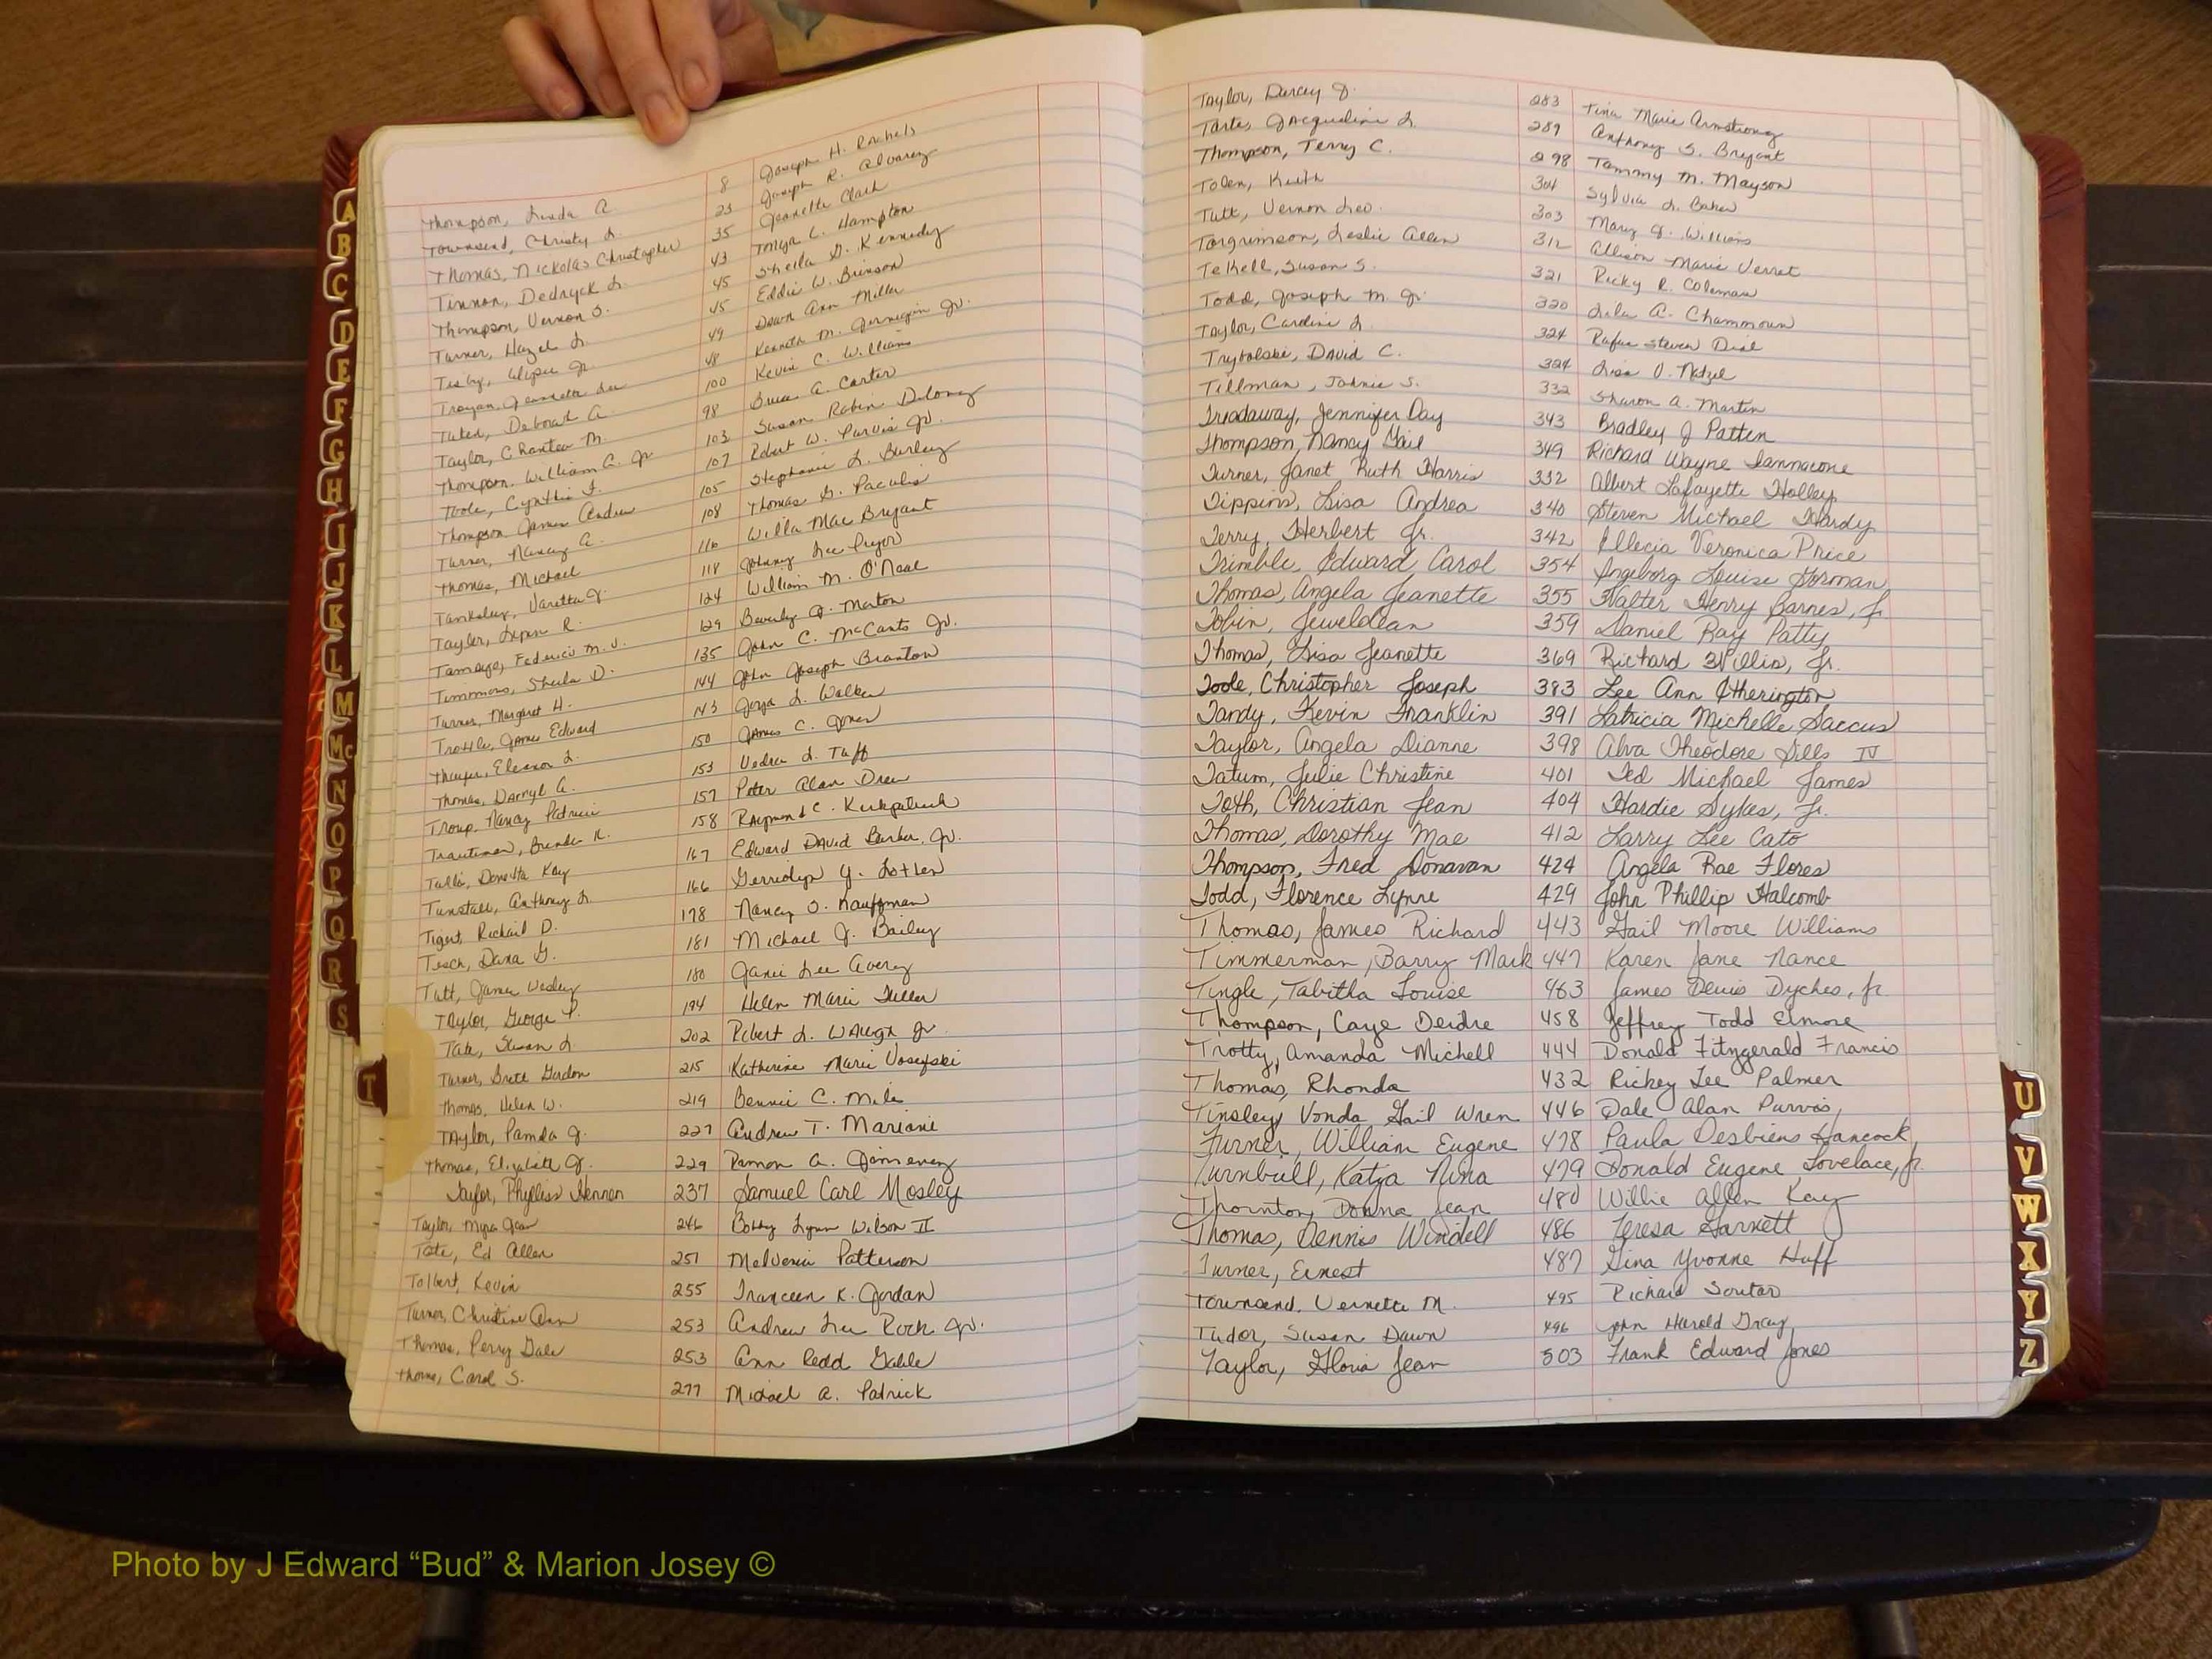 Thompson, Linda A. 8 Joseph H. Rachels
Townsend, Christy L. 23 Joseph R. Alvarez
Thomas, Nickolas Christopher 35 Jeanette Clark
Tinnon, Dedryck L. 43 Tonya L. Hampton
Thompson, Vernon O. 45 Sheila G. Kennedy
Turner, Hazel L. 45 Eddie W. Brinson
Jr. 49 Dawn Ann Miller
Jeannette Lee 48 Kenneth M. Jernigan Jr.
Deborah A. 100 Kevin C. Williams
Taylor, M. 98 A. Carter
Thompson, William C. Jr 103 Susan Robin
Toole, Cynthia F. 107 Robert W. Purvis Jr.
Thompson James Andrew 105 Stephanie L. Burley
Turner, Nancy A. 108 Thomas G.
Thomas, Michael 116 Willa Mae Bryant
Tanksley, J. 118 Johnny Lee Pryor
Taylor, Lynn R. 124 William M. O'Neal
Tamayo, Federico M. J. 129 Beverly J. Morton
Timmons, Sheila D. 135 John C. McCants Jr.
Turner, Margaret H. 144 John Joseph Branton
Trottle, James Edward 143 L. Walker
Thayer, Eleanor L. 150 James C. Jones
Thomas, Darryl A. 153 L. Taff
Troup, Nancy Patricia 157 Peter Alan Drew
Trautman, Brenda K. 158 Raymond C. Kirkpatrick
Tullis, Donetta Kay 167 Edward David Barber, Jr.
Tunstall, Anthony L. 166 Gerridyn Y.
Tigert, Richard D. 178 Nancy O. Kauffman
Tesch, Dana G. 181 Michael J. Bailey
Tutt, James Wesley 180 Janie Lee Avery
Taylor, George P. 194 Helen Marie Fuller
Tate, Susan L 202 Robert L. Waugh Jr
Turner, Brett Gordon 215 Katherine Marie
Thomas, Helen W. 219 Bennie C.
Taylor, Pamela J. 227 Andrew T. Mariani
Thomas, Elizabeth J. 229 Ramon A.
Taylor, Phylliss Hennon 237 Samuel Carl Mosley
Taylor, Myra Jean 246 Bobby Lynn Wilson II
Tate, Ed Allen 251 Melvenia Patterson
Tolbert, Kevin 255 Franceen K. Jordan
Turner, Christine Ann 253 Andrew Lee Rock Jr.
Thomas, Perry Dale 253 Ann Redd Gable
Thorne, Carol S. 277 Michael A. Patrick
Taylor, Darcey J. 283 Tina Marie Armstrong
Tarte, Jacqueline L. 289 Anthony S. Bryant
Thompson, Terry C. 298 Tammy M. Mayson
Tolen, Keith 304 Sylvia L. Baker
Tutt, Vernon Leo. 303 Mary J. Williams
Torgrimson, Leslie Allen 312 Allison Marie Verret
Tekell, Susan S. 321 Ricky R. Coleman
Todd, Joseph M. Jr. 320 Lila A. Chammoun
Taylor, Caroline L. 324 Rufus Steven Dial
Trybalski, David C. 324 Lisa V. Natzel
Tillman, Johnie S. 332 Sharon A. Martin
Treadaway, Jennifer Day 343 Bradley J Patten
Thompson, Nancy Gail 349 Richard Wayne Iannacone
Turner, Janet Ruth Harris 332 Albert Lafayette Holley
Tippins, Lisa Andrea 340 Steven Michael Hardy
Terry, Herbert Jr. 342 Ellecia Veronica Price
Trimble, Edward Carol 354 Ingeborg Louise Gorman
Thomas, Angela Jeanette 355 Walter Henry Barnes, Jr
Tobin, Jeweldean 359 Daniel Ray Patty
Thomas, Lisa Jeanette 369 Richard Willis, Jr.
Toole, Christopher Joseph 383 Lee Ann Etherington
Tandy, Kevin Franklin 391 Latricia Michelle Saccus
Taylor, Angela Dianne 398 Alva Theodore Sills IV
Tatum, Julie Christine 401 Ted Michael James
Toth, Christian Jean 404 Hardie Sykes, Jr.
Thomas, Dorothy Mae 412 Larry Lee Cato
Thompson, Fred Donavan 424 Angela Rae Flores
Todd, Florence Lynne 429 John Phillip Halcomb
Thomas, James Richard 443 Gail Moore Williams
Timmerman, Barry Mark 447 Karen Jane Nance
Tingle, Tabitha Louise 463 James Denis Dyches, Jr.
Thompson, Caye Deidre 458 Jeffrey Todd Elmore
Trotty, Amanda Michell 444 Donald Fitzgerald Francis
Thomas, Rhonda 432 Rickey Lee Palmer
Tinsley, Vonda Gail Wren 446 Dale Alan Purvis
Turner, William Eugene 478 Paula Desbiens Hancock
Turnbull, Katja Nina 479 Donald Eugene Lovelace, Jr.
Thornton, Donna Jean 480 Willie Allen Kay
Thomas, Dennis Windell 486 Teresa Garnett
Turner, Ernest 487 Gina Yvonne Huff
Townsend, Vernetta M. 495 Richard Soutar
Tudor, Susan Dawn 496 John Harold Gray
Taylor, Gloria Jean 503 Frank Edward Jones
A
B
C
D
E
F
G
H
I
J
K
L
M
Mc
N
O
P
Q
R
S
T
U
V
W
X
Y
Z
Photo by J Edward “Bud” & Marion Josey ©